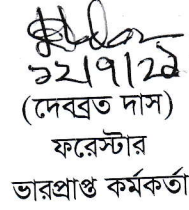 ১২/৭/২১
(দেবব্রত দাস)
ফরেস্টার
ভারপ্রাপ্ত কর্মকর্তা